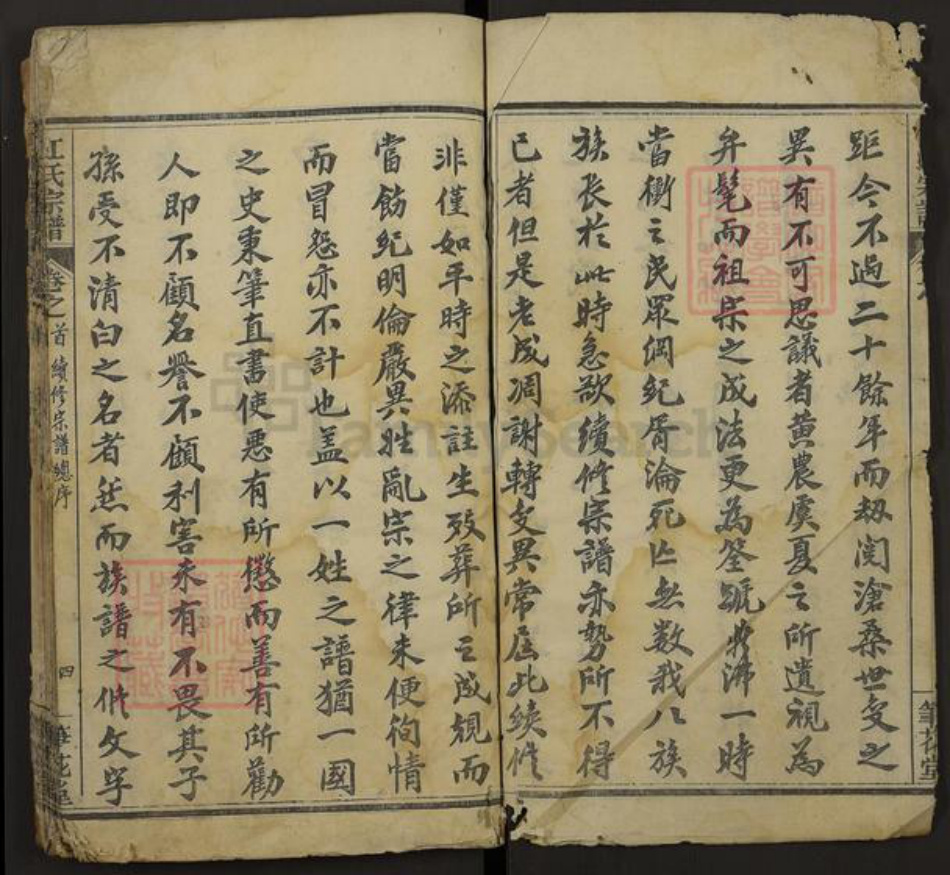 距今不過二十餘年而劫閱滄桑世變之
異有不可思議者黃農虞夏之所遺視為
弁髦而祖宗之成法更為筌蹏弗一時
當衝之民眾綱紀胥淪死亡無數我八族
族長於此時急欲續修宗譜亦勢所不得
已者但是老成凋謝轉變異常居此續修
非僅如平時之添註生歿葬所之成規而
當飭紀明倫嚴異姓亂宗之律未便徇情
而冒怨亦不計也蓋以一姓之譜猶一國
之史秉筆直書使惡有所懲而善有所勸
人即不顧名譽不顧利害未有不畏其子
孫受不清白之名者然而族譜之修文字
江氏宗譜
卷之首
續修宗譜總序
四
筆花堂
筆花堂
Family Search